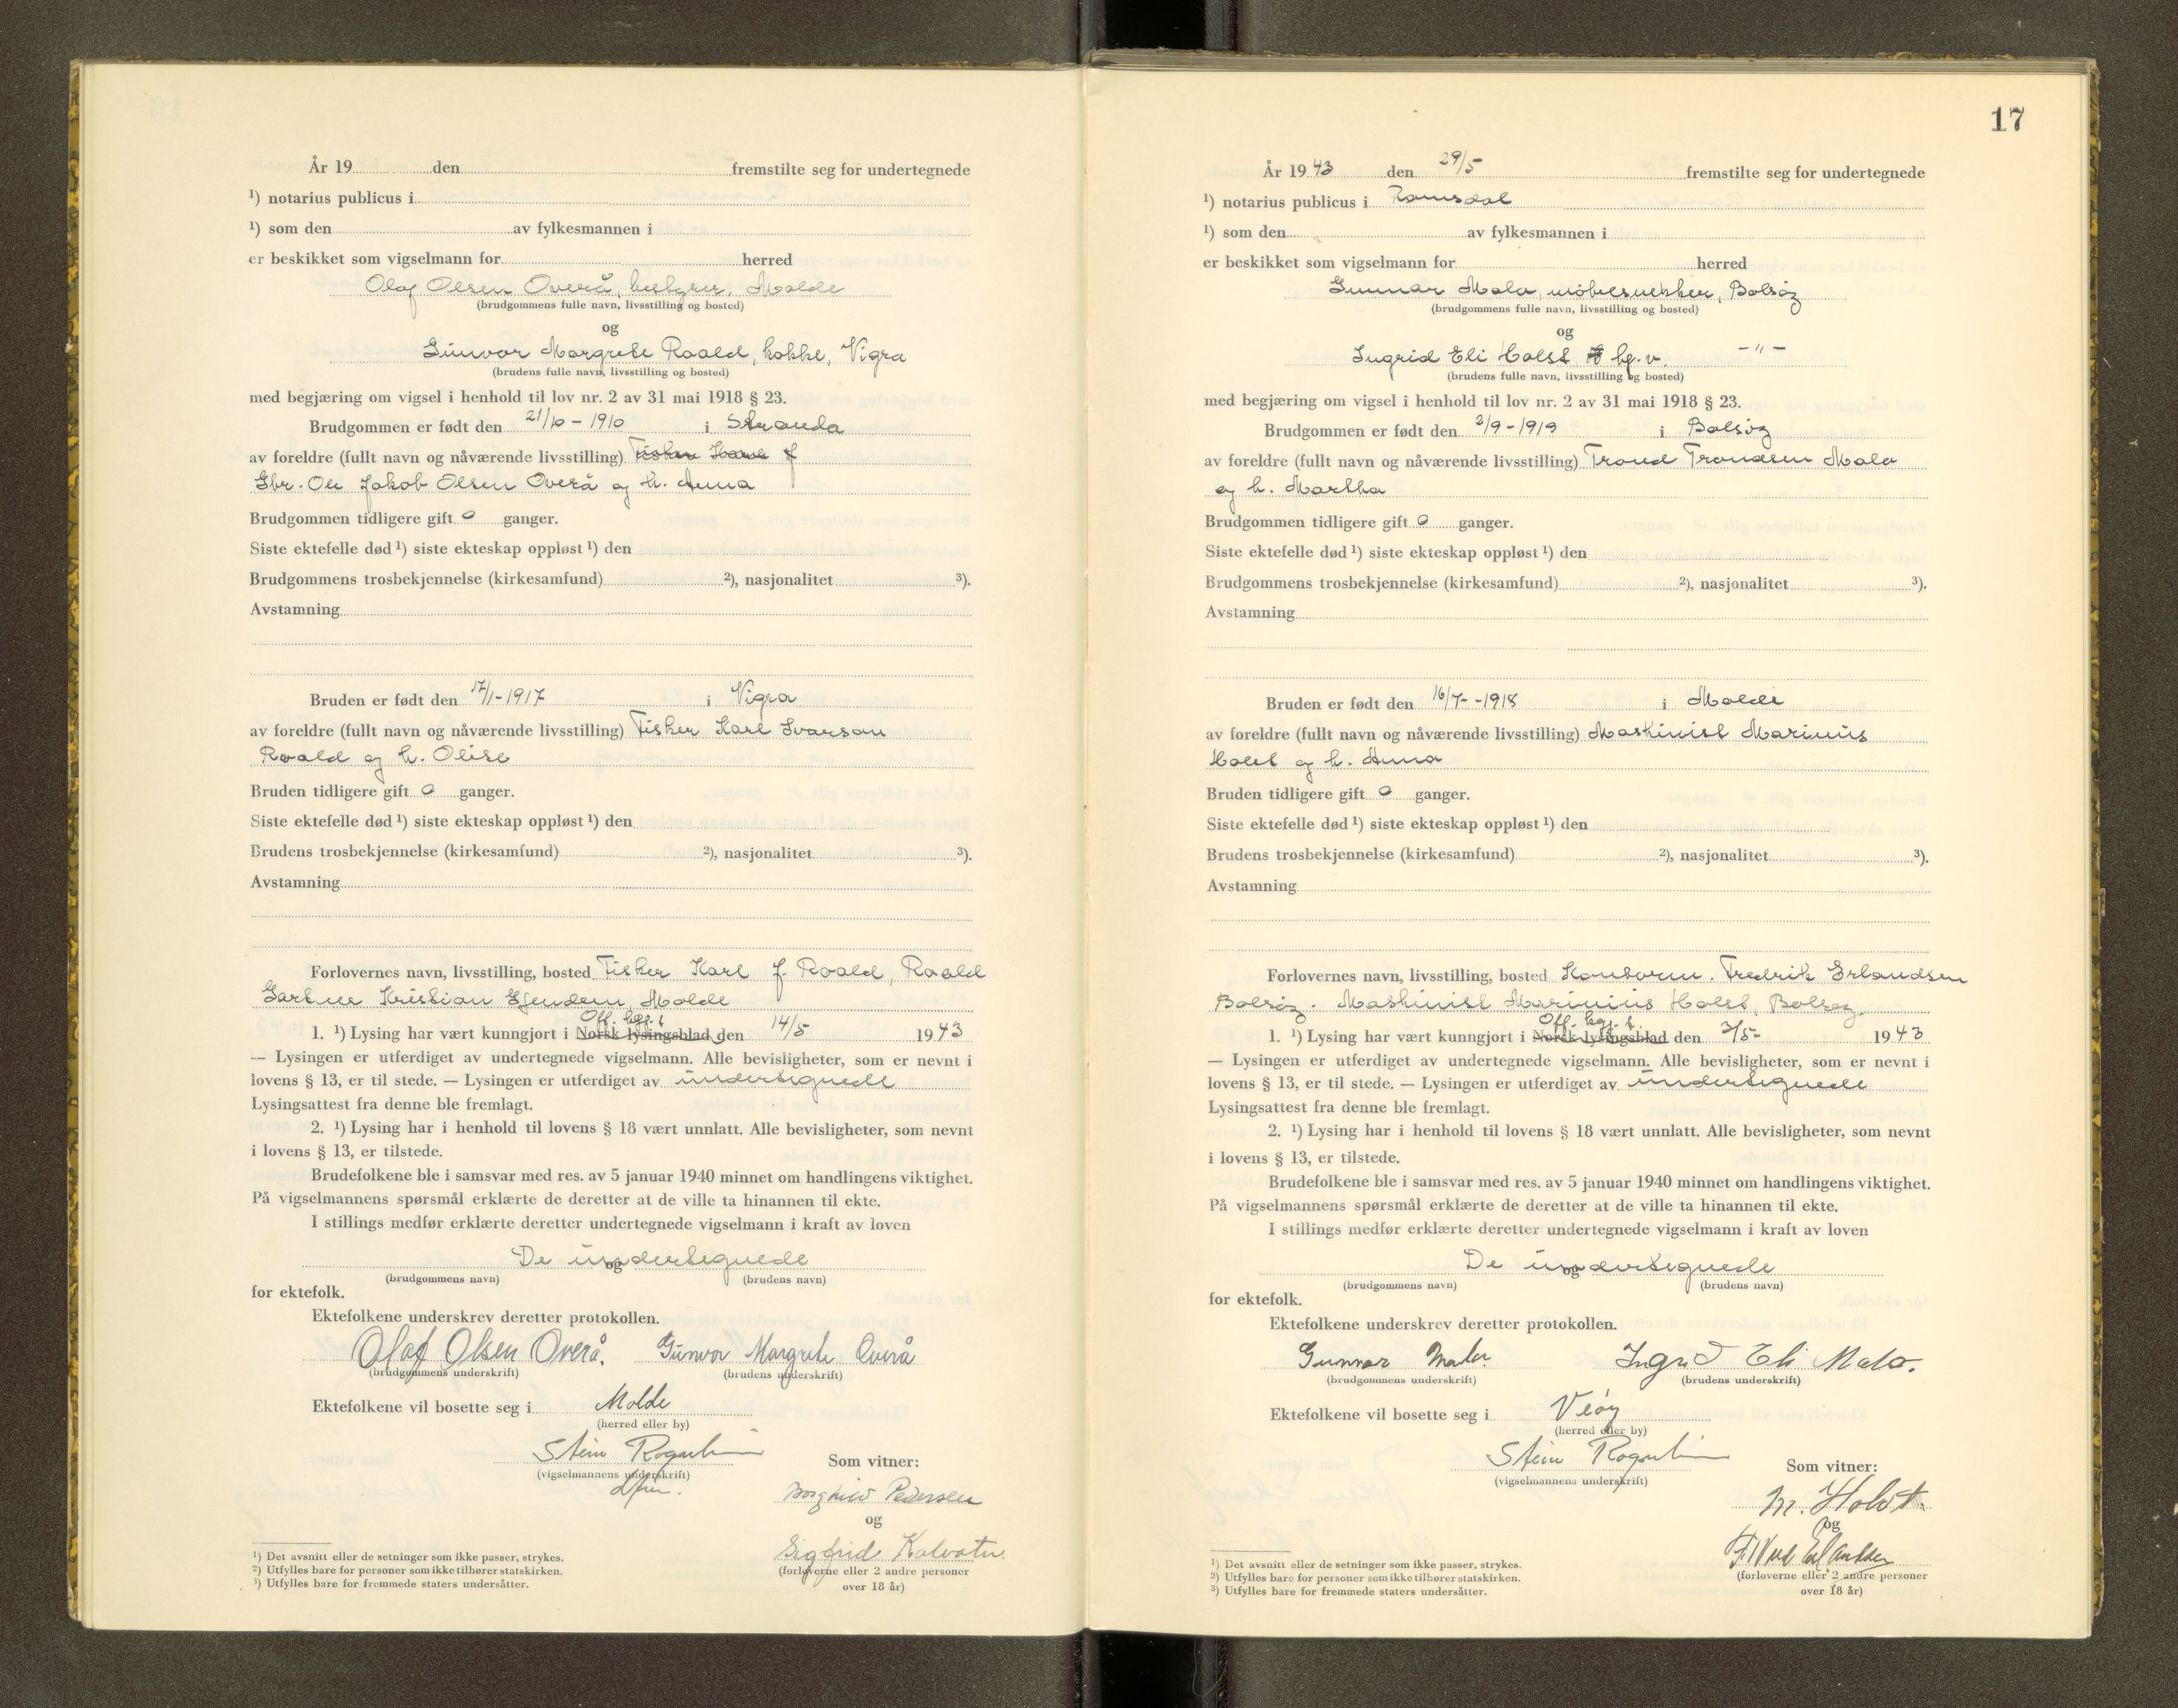 År 19 den fremstilte seg for undertegnede
¹) notarius publicus i
¹) som den av fylkesmannen i
er beskikket som vigselmann for herred
Olaf Olsen Overå, Molde
(brudgommens fulle navn, livsstilling og bosted)
og
Gunvor Margrete Roald, kokke, Vigra
(brudens fulle navn, livsstilling og bosted)
med begjæring om vigsel i henhold til lov nr. 2 av 31 mai 1918 § 23.
Brudgommen er født den 21/10 - 1910 i Stranda
av foreldre (fullt navn og nåværende livsstilling) Fisker
Gbr. Ole Jakob Olsen Overå og h. Anna
Brudgommen tidligere gift 0 ganger.
Siste ektefelle død ¹) siste ekteskap oppløst ¹) den
Brudgommens trosbekjennelse (kirkesamfund) ²), nasjonalitet ³).
Avstamning
Bruden er født den 17/1 - 1917 i Vigra
av foreldre (fullt navn og nåværende livsstilling) Fisker Karl Ivarson
Roald og h. Olise
Bruden tidligere gift 0 ganger.
Siste ektefelle død ¹) siste ekteskap oppløst ¹) den
Brudens trosbekjennelse (kirkesamfund) ²), nasjonalitet ³).
Avstamning
Forlovernes navn, livsstilling, bosted Fisker Karl J. Roald, Roald
Gartner Kristian Gjendem, Molde
Off. kgj. t.
1. ¹) Lysing har vært kunngjort i Norsk lysingsblad den 14/5 1943
— Lysingen er utferdiget av undertegnede vigselmann. Alle bevisligheter, som er nevnt i
lovens § 13, er til stede. — Lysingen er utferdiget av undertegnede
Lysingsattest fra denne ble fremlagt.
2. ¹) Lysing har i henhold til lovens § 18 vært unnlatt. Alle bevisligheter, som nevnt
i lovens § 13, er tilstede.
Brudefolkene ble i samsvar med res. av 5 januar 1940 minnet om handlingens viktighet.
På vigselmannens spørsmål erklærte de deretter at de ville ta hinannen til ekte.
I stillings medfør erklærte deretter undertegnede vigselmann i kraft av loven
De undertegnede
og
(brudgommens navn) (brudens navn)
for ektefolk.
Ektefolkene underskrev deretter protokollen.
Olaf Olsen Overå. Gunvor Margrete Overå
(brudgommens underskrift) (brudens underskrift)
Ektefolkene vil bosette seg i Molde
(herred eller by)
Stein Rognlien
(vigselmannens underskrift)
Som vitner:
Borghild Pedersen
og
Sigfrid Kalvatn.
(forloverne eller 2 andre personer
over 18 år)
¹) Det avsnitt eller de setninger som ikke passer, strykes.
²) Utfylles bare for personer som ikke tilhører statskirken.
³) Utfylles bare for fremmede staters undersåtter.
17
År 1943 den 29/5 fremstilte seg for undertegnede
¹) notarius publicus i Romsdal
¹) som den av fylkesmannen i
er beskikket som vigselmann for herred
Gunnar Malo, møbelsnekker, Bolsøy
(brudgommens fulle navn, livsstilling og bosted)
og
Ingrid Eli Holst hj. v. - " -
(brudens fulle navn, livsstilling og bosted)
med begjæring om vigsel i henhold til lov nr. 2 av 31 mai 1918 § 23.
Brudgommen er født den 2/9 - 1919 i Bolsøy
av foreldre (fullt navn og nåværende livsstilling) Trond Trondsen Malo
og h. Martha
Brudgommen tidligere gift 0 ganger.
Siste ektefelle død ¹) siste ekteskap oppløst ¹) den
Brudgommens trosbekjennelse (kirkesamfund) ²), nasjonalitet ³).
Avstamning
Bruden er født den 16/7 - 1918 i Molde
av foreldre (fullt navn og nåværende livsstilling) Maskinist Marinius
Holst og h. Anna
Bruden tidligere gift 0 ganger.
Siste ektefelle død ¹) siste ekteskap oppløst ¹) den
Brudens trosbekjennelse (kirkesamfund) ²), nasjonalitet ³).
Avstamning
Forlovernes navn, livsstilling, bosted Kontorm. Fredrik Erlandsen
Bolsøy. Maskinist Marinius Holst, Bolsøy.
Off. kgj. t.
1. ¹) Lysing har vært kunngjort i Norsk lysingsblad den 3/5- 1943
— Lysingen er utferdiget av undertegnede vigselmann. Alle bevisligheter, som er nevnt i
lovens § 13, er til stede. — Lysingen er utferdiget av undertegnede
Lysingsattest fra denne ble fremlagt.
2. ¹) Lysing har i henhold til lovens § 18 vært unnlatt. Alle bevisligheter, som nevnt
i lovens § 13, er tilstede.
Brudefolkene ble i samsvar med res. av 5 januar 1940 minnet om handlingens viktighet.
På vigselmannens spørsmål erklærte de deretter at de ville ta hinannen til ekte.
I stillings medfør erklærte deretter undertegnede vigselmann i kraft av loven
De undertegnede
og
(brudgommens navn) (brudens navn)
for ektefolk.
Ektefolkene underskrev deretter protokollen.
Gunnar Malo. Ingrid Eli Malo.
(brudgommens underskrift) (brudens underskrift)
Ektefolkene vil bosette seg i Veøy
(herred eller by)
Stein Rognlien
(vigselmannens underskrift)
Som vitner:
M. Holst.
og
Erlandsen
(forloverne eller 2 andre personer
over 18 år)
¹) Det avsnitt eller de setninger som ikke passer, strykes.
²) Utfylles bare for personer som ikke tilhører statskirken.
³) Utfylles bare for fremmede staters undersåtter.